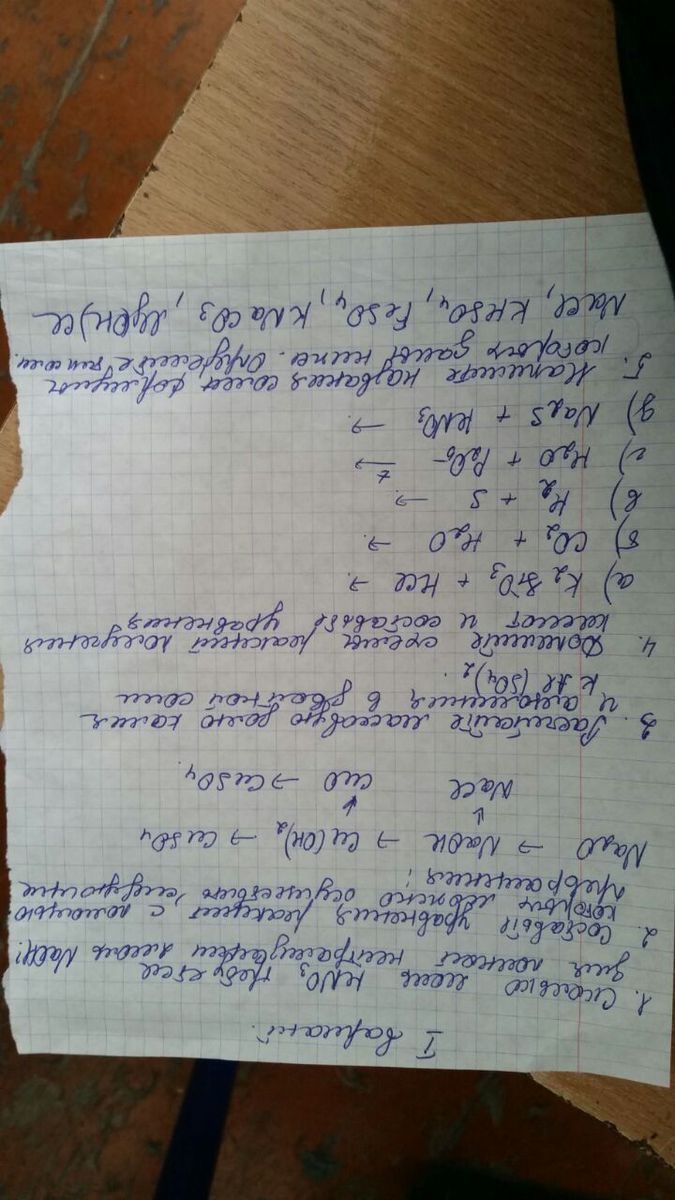 I вариант.
1. Сколько моль HNO3 требуется
для полной нейтрализации моль NaOH?
2. Составьте уравнения реакций, с помощью
которых можно осуществить следующие
превращения:
Na2O → NaOH → Cu(OH)2 → CuSO4
↓ ↓
NaCl CuO → CuSO4.
3. Рассчитайте массовую долю калия
и алюминия в двойной соли
KAl(SO4)2.
4. Допишите схемы реакций получения
кислот и составьте уравнения
а) K2SiO3 + HCl →
б) CO2 + H2O →.
в) H2 + S →.
г) H2O + P2O5 t→
д) Na2S + HNO3 →.
5. Напишите названия солей формулы
которых даны ниже. Определите тип соли.
NaCl, KHSO4, FeSO4, KNaCO3, Mg(OH)Cl